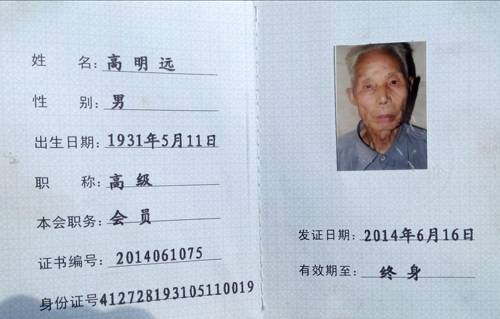 姓 名：高明远
性 别：男
出生日期：1931年5月11日
职 称：高级
本会职务：会员
证书编号：2014061075
身份证号412728193105110019
发证日期：2014年6月16日
有效期至：终身